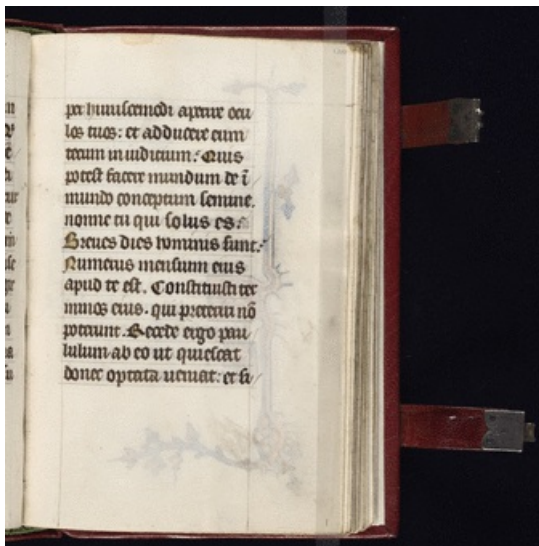 per huiuscemodi aperire ocu
los tuos: et adducere eum
tecum in iudicium: Quis
potest facere mundum de ī
mundo conceptum semine.
nonne tu qui solus es:
Breues dies hominis sunt:
Numerus mensium eius
apud te est. Constituisti ter
minos eius. qui preteriri nō
poterunt. Recede ergo pau
lulum ab eo ut quiescat
donec optata ueniat: et si